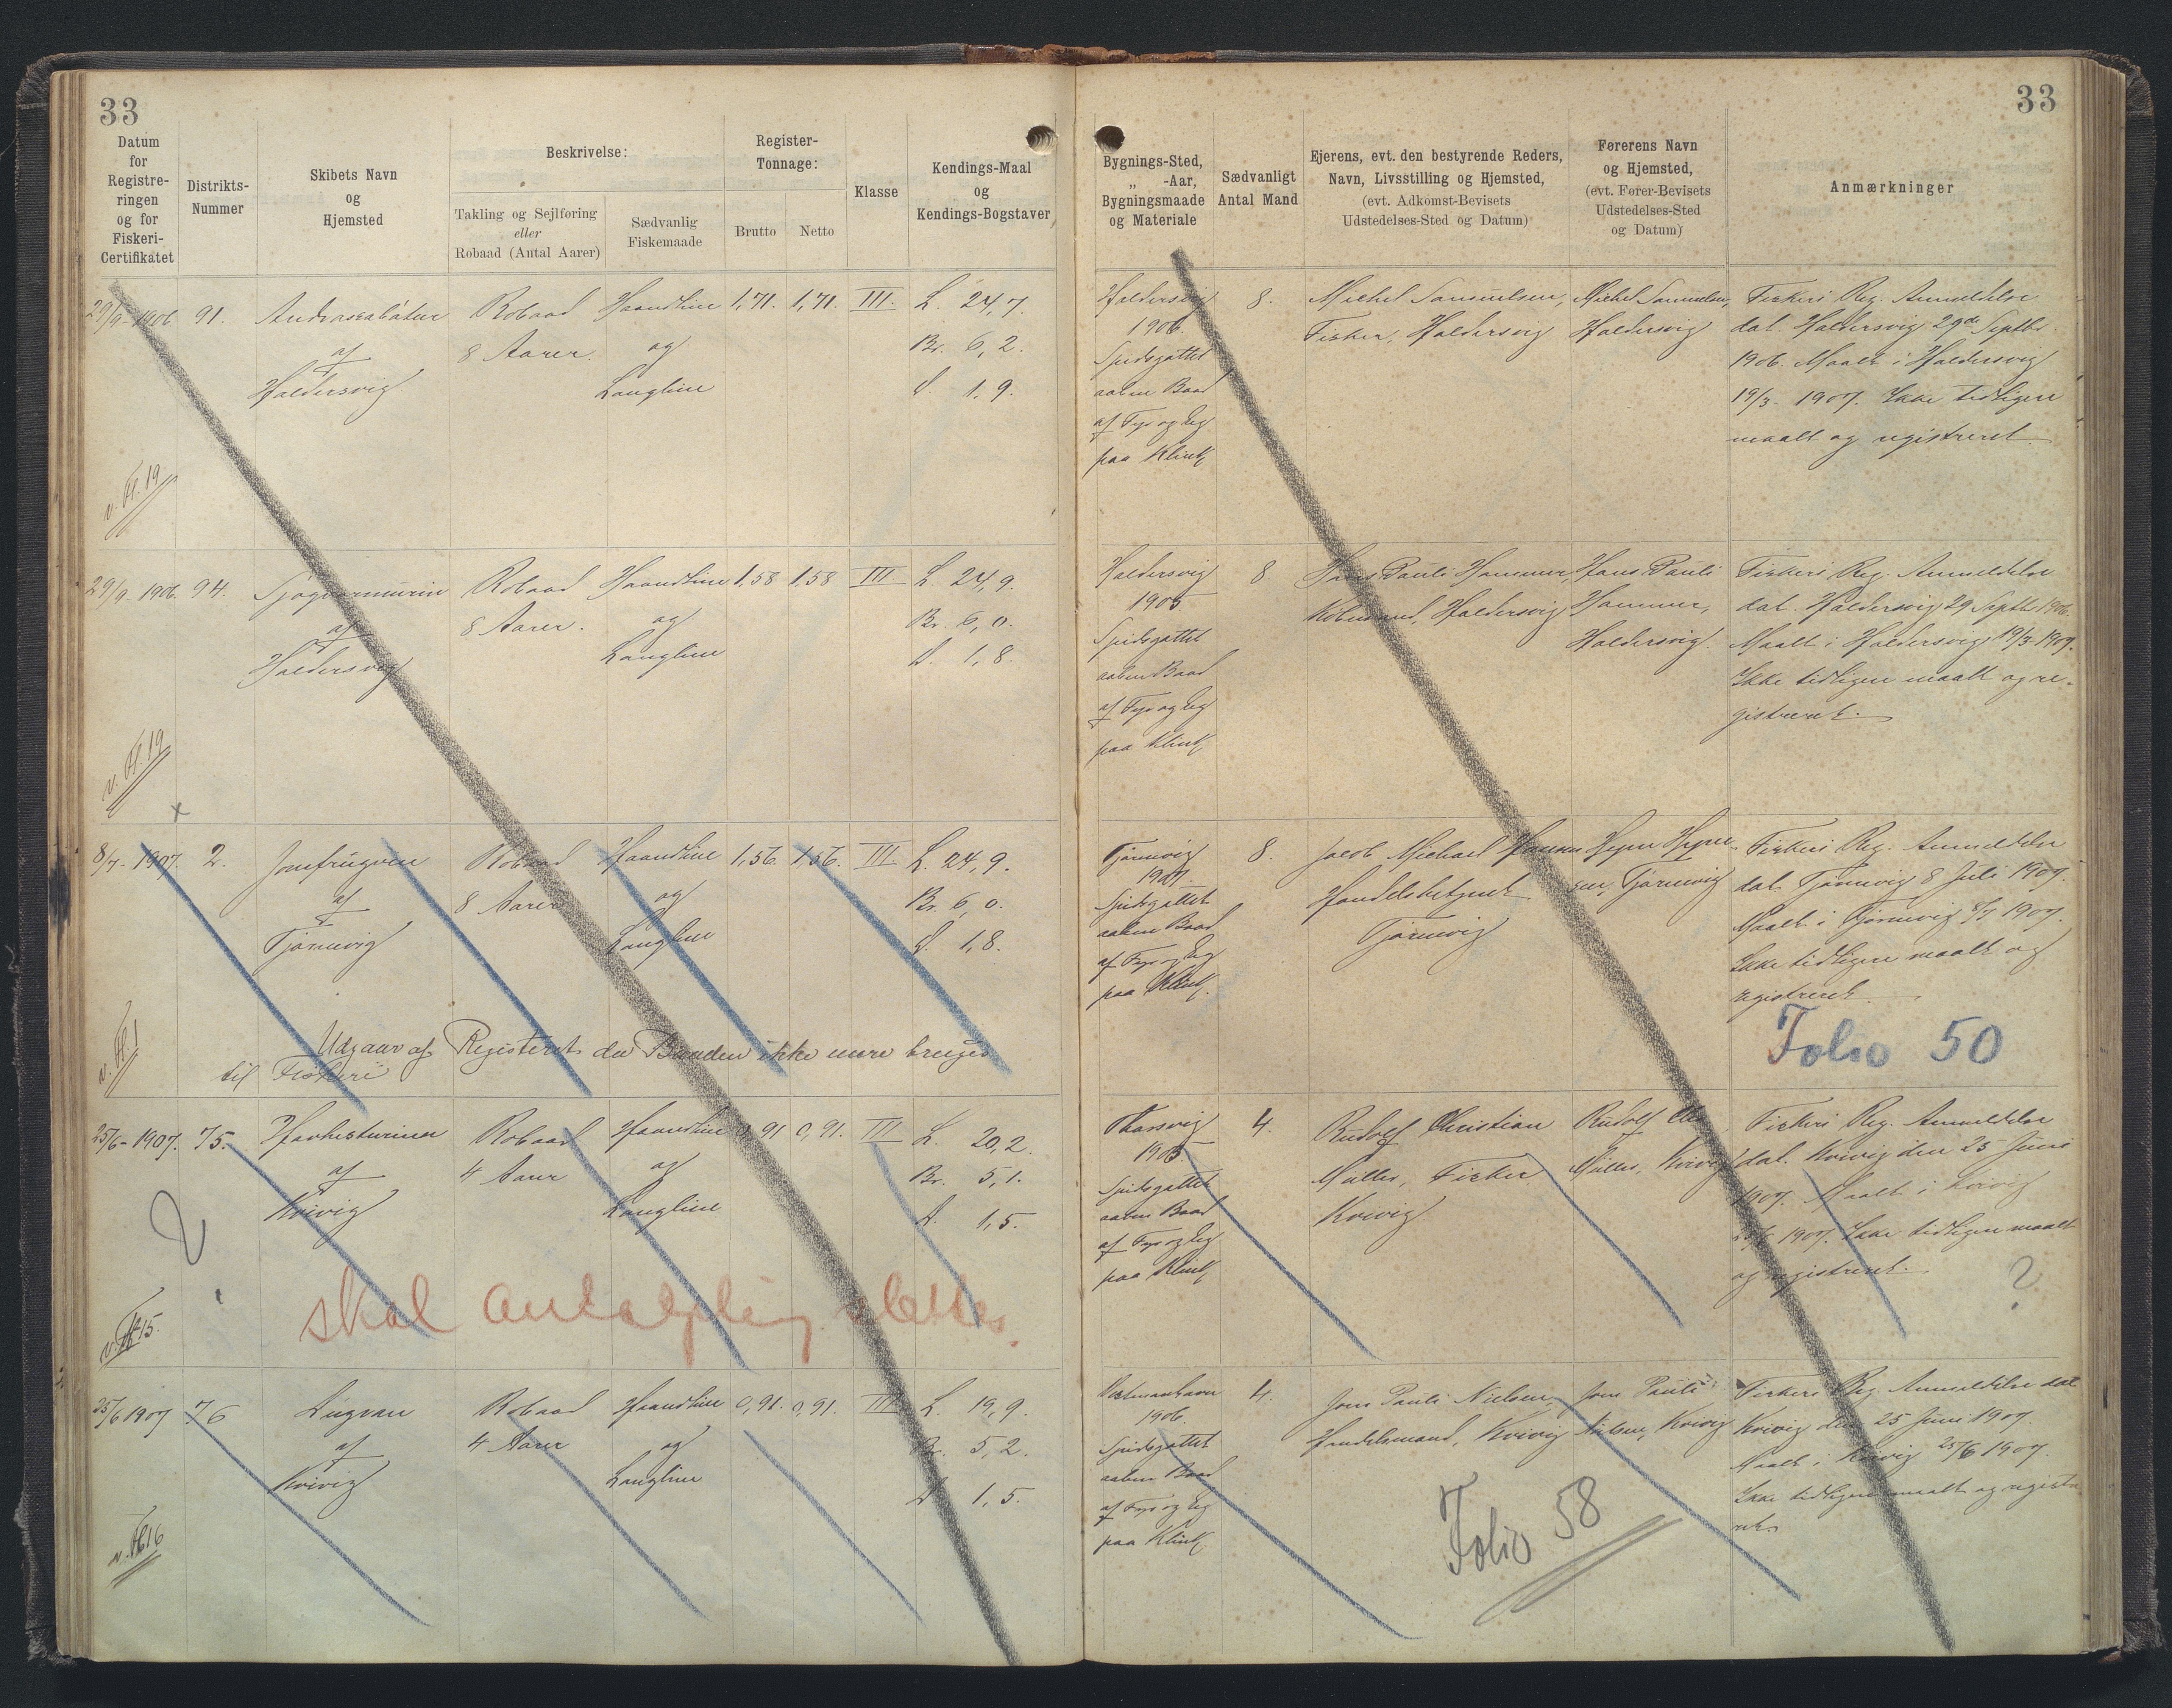 33
Datum
for
Registre-
ringen
og for
Fiskeri-
Certifikatet
Distrikts-
Nummer
Skibets Navn
og
Hjemsted
Beskrivelse:
Takling og Sejlføring
eller
Robaad (Antal Aarer)
Sædvanlig
Fiskemaade
Register-
Tonnage:
Brutto
Netto
Klasse
Kendings-Maal
og
Kendings-Bogstaver
29/9 - 1906
91.
af
Haldersvig
Robaad
8 Aarer.
Haandline
og
Langline
1,71.
1,71.
III.
L. 24,7.
Br. 6,2.
D. 1,9.
v. Fl. 19
29/9 - 1906.
94.
af
Haldersvig
Robaad
8 Aarer.
Haandline
og
Langline
1,58
1,58
III
L. 24,9.
Br. 6,0.
D. 1,8.
v. Fl. 19
x
8/7 - 1907.
2.
Jomfrugven
af
Tjørnevig
Robaad
8 Aarer
Haandline
og
Langline
1,56.
1,56.
III
L. 24,9.
Br. 6,0.
D. 1,8.
Udgaar af Registeret da Baaden ikke mere bruges
til Fiskeri
v. Fl. 1
25/6 - 1907.
75.
Havhesturinn
af
Kvivig
Robaad
4 Aarer
Haandline
og
Langline
0,91
0,91.
III
L. 20,2.
Br. 5,1.
D. 1,5.
?
skal slettes.
v. Fl. 15.
25/6 1907
76
af
Kvivig
Robaad
4 Aarer
Haandline
og
Langline
0,91.
0,91.
III
L. 19,9.
Br. 5,2.
D 1,5.
v. Fl. 16
33
Bygnings-Sted,
„ -Aar,
Bygningsmaade
og Materiale
Sædvanligt
Antal Mand
Ejerens, evt. den bestyrende Reders,
Navn, Livsstilling og Hjemsted,
(evt. Adkomst-Bevisets
Udstedelses-Sted og Datum)
Førerens Navn
og Hjemsted,
(evt. Fører-Bevisets
Udstedelses-Sted
og Datum)
Anmærkninger
Haldersvig
1906.
Spidsgattet
aaben Baad
af Fyr og Eg
paa Klink
8.
Michel Samuelsen,
Fisker, Haldersvig
Michel Samuelsen,
Haldersvig
Fiskeri Reg. Anmeldelse
dat. Haldersvig 29de Septbr.
1906. Maalt i Haldersvig
19/3 - 1907. Ikke tidligere
maalt og registreret.
Haldersvig
1905
Spidsgattet
aaben Baad
af Fyr og Eg
paa Klink
8
Hans Pauli Hammer
Købmand, Haldersvig
Hans Pauli
Hammer,
Haldersvig.
Fiskeri Reg. Anmeldelse
dat. Haldersvig 29 Septbr 1906.
Maalt i Haldersvig 19/3 1907.
Ikke tidligere maalt og re-
gistreret.
Tjørnevig
1907.
Spidsgattet
aaben Baad
af Fyr og Eg
paa Klink.
8.
Jacob Michael Hansen
Handelsbetjent
Tjørnevig
Tjørnevig
Fiskeri Reg. Anmeldelse
dat. Tjørnevig 8 Juli 1907.
Maalt i Tjørnevig 8/7 1907.
Ikke tidligere maalt og
registreret.
Folio 50
Thorsvig
1905.
Spidsgattet
aaben Baad
af Fyr og Eg
paa Klink
4.
Rudolf Christian
Müller, Fisker
Kvivig
Rudolf Chr.
Müller, Kvivig
Fiskeri Reg. Anmeldelse
dat. Kvivig den 25 Juni
1907. Maalt i Kvivig
25/6 1907. Ikke tidligere maalt
og registreret.
?
Vestmanhavn
1906.
Spidsgattet
aaben Baad
af Fyr og Eg
paa Klink
4.
Jens Pauli Nielsen,
Handelsmand, Kvivig
Jens Pauli
Nielsen, Kvivig
Fiskeri Reg. Anmeldelse dat
Kvivig den 25 Juni 1907.
Maalt i Kvivig 25/6 1907.
Ikke tidligere maalt og registre-
ret.
Folio 58